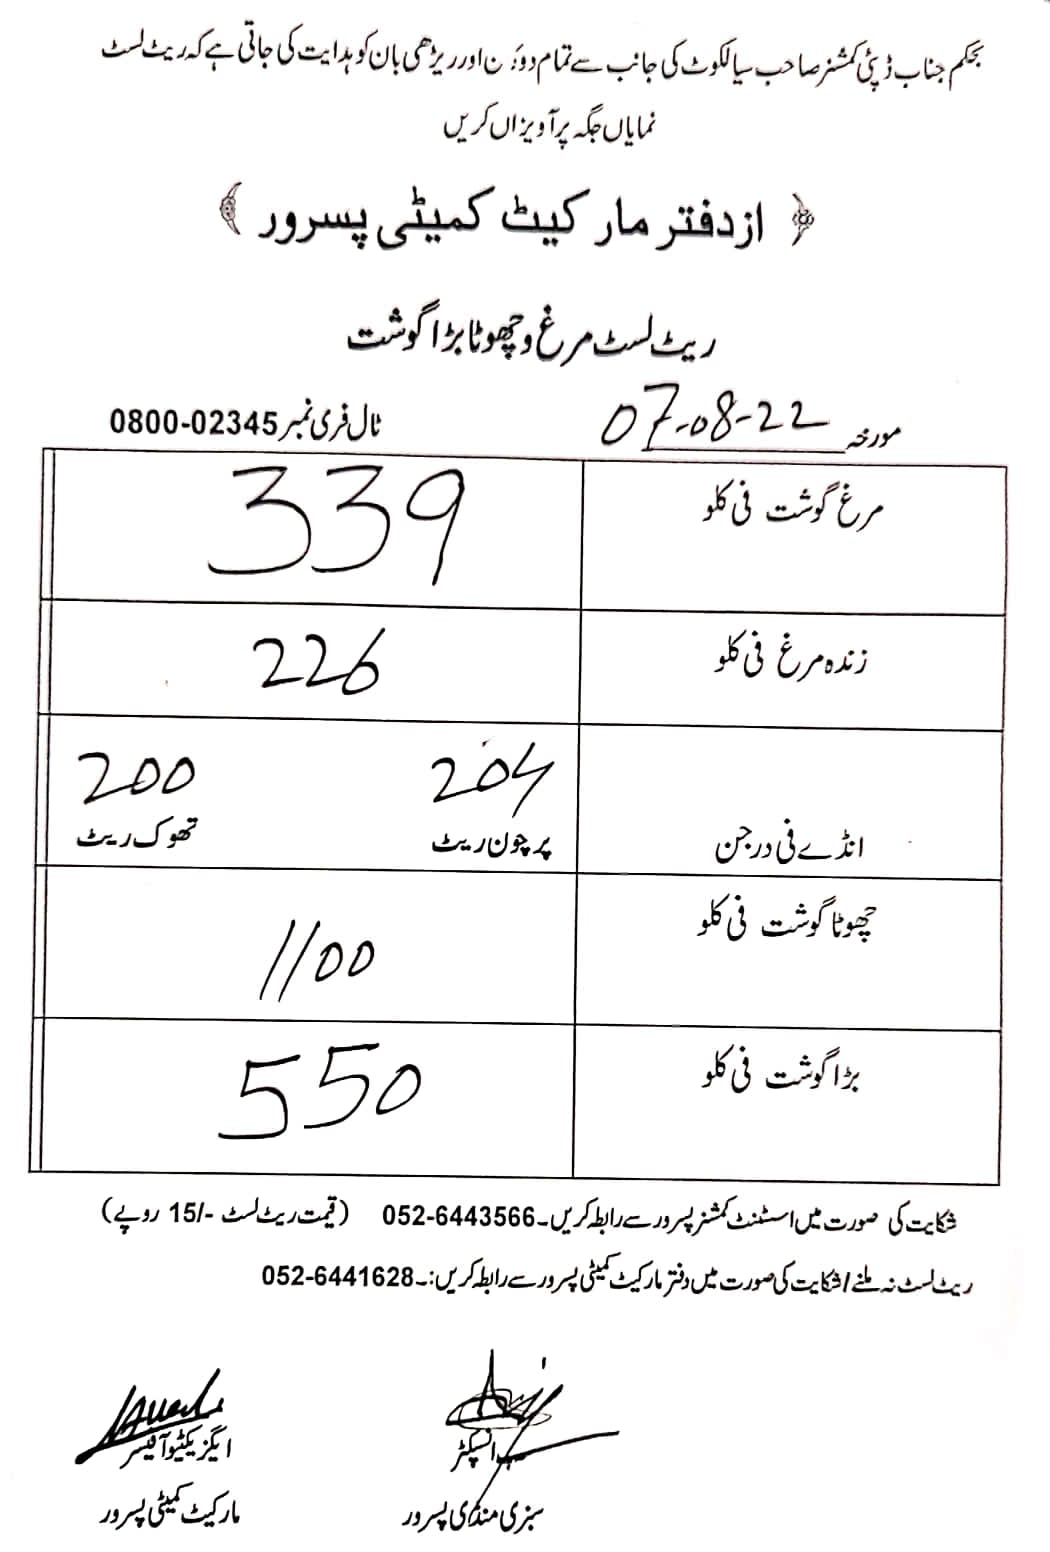 بحکم جناب ڈپٹی کمشنر صاحب سیالکوٹ کی جانب سے تمام اور ریڑھی بان کو ہدایت کی جاتی ہے کہ ریٹ لسٹ
نمایاں جگہ پر آویزاں کریں
﴿ از دفتر مارکیٹ کمیٹی پسرور ﴾
ریٹ لسٹ مرغ و چھوٹا بڑا گوشت
مورخہ 07-08-22 ٹال فری نمبر 0800-02345
مرغ گوشت فی کلو 339
زندہ مرغ فی کلو 226
204 200
انڈے فی درجن پرچون ریٹ تھوک ریٹ
چھوٹا گوشت فی کلو 1100
بڑا گوشت فی کلو 550
شکایت کی صورت میں اسسٹنٹ کمشنر پسرور سے رابطہ کریں۔ 052-6443566 (قیمت ریٹ لسٹ -/15 روپے)
ریٹ لسٹ نہ ملنے / شکایت کی صورت میں دفتر مارکیٹ کمیٹی پسرور سے رابطہ کریں:۔ 052-6441628
انسپکٹر ایگزیکٹیو آفیسر
سبزی منڈی پسرور مارکیٹ کمیٹی پسرور